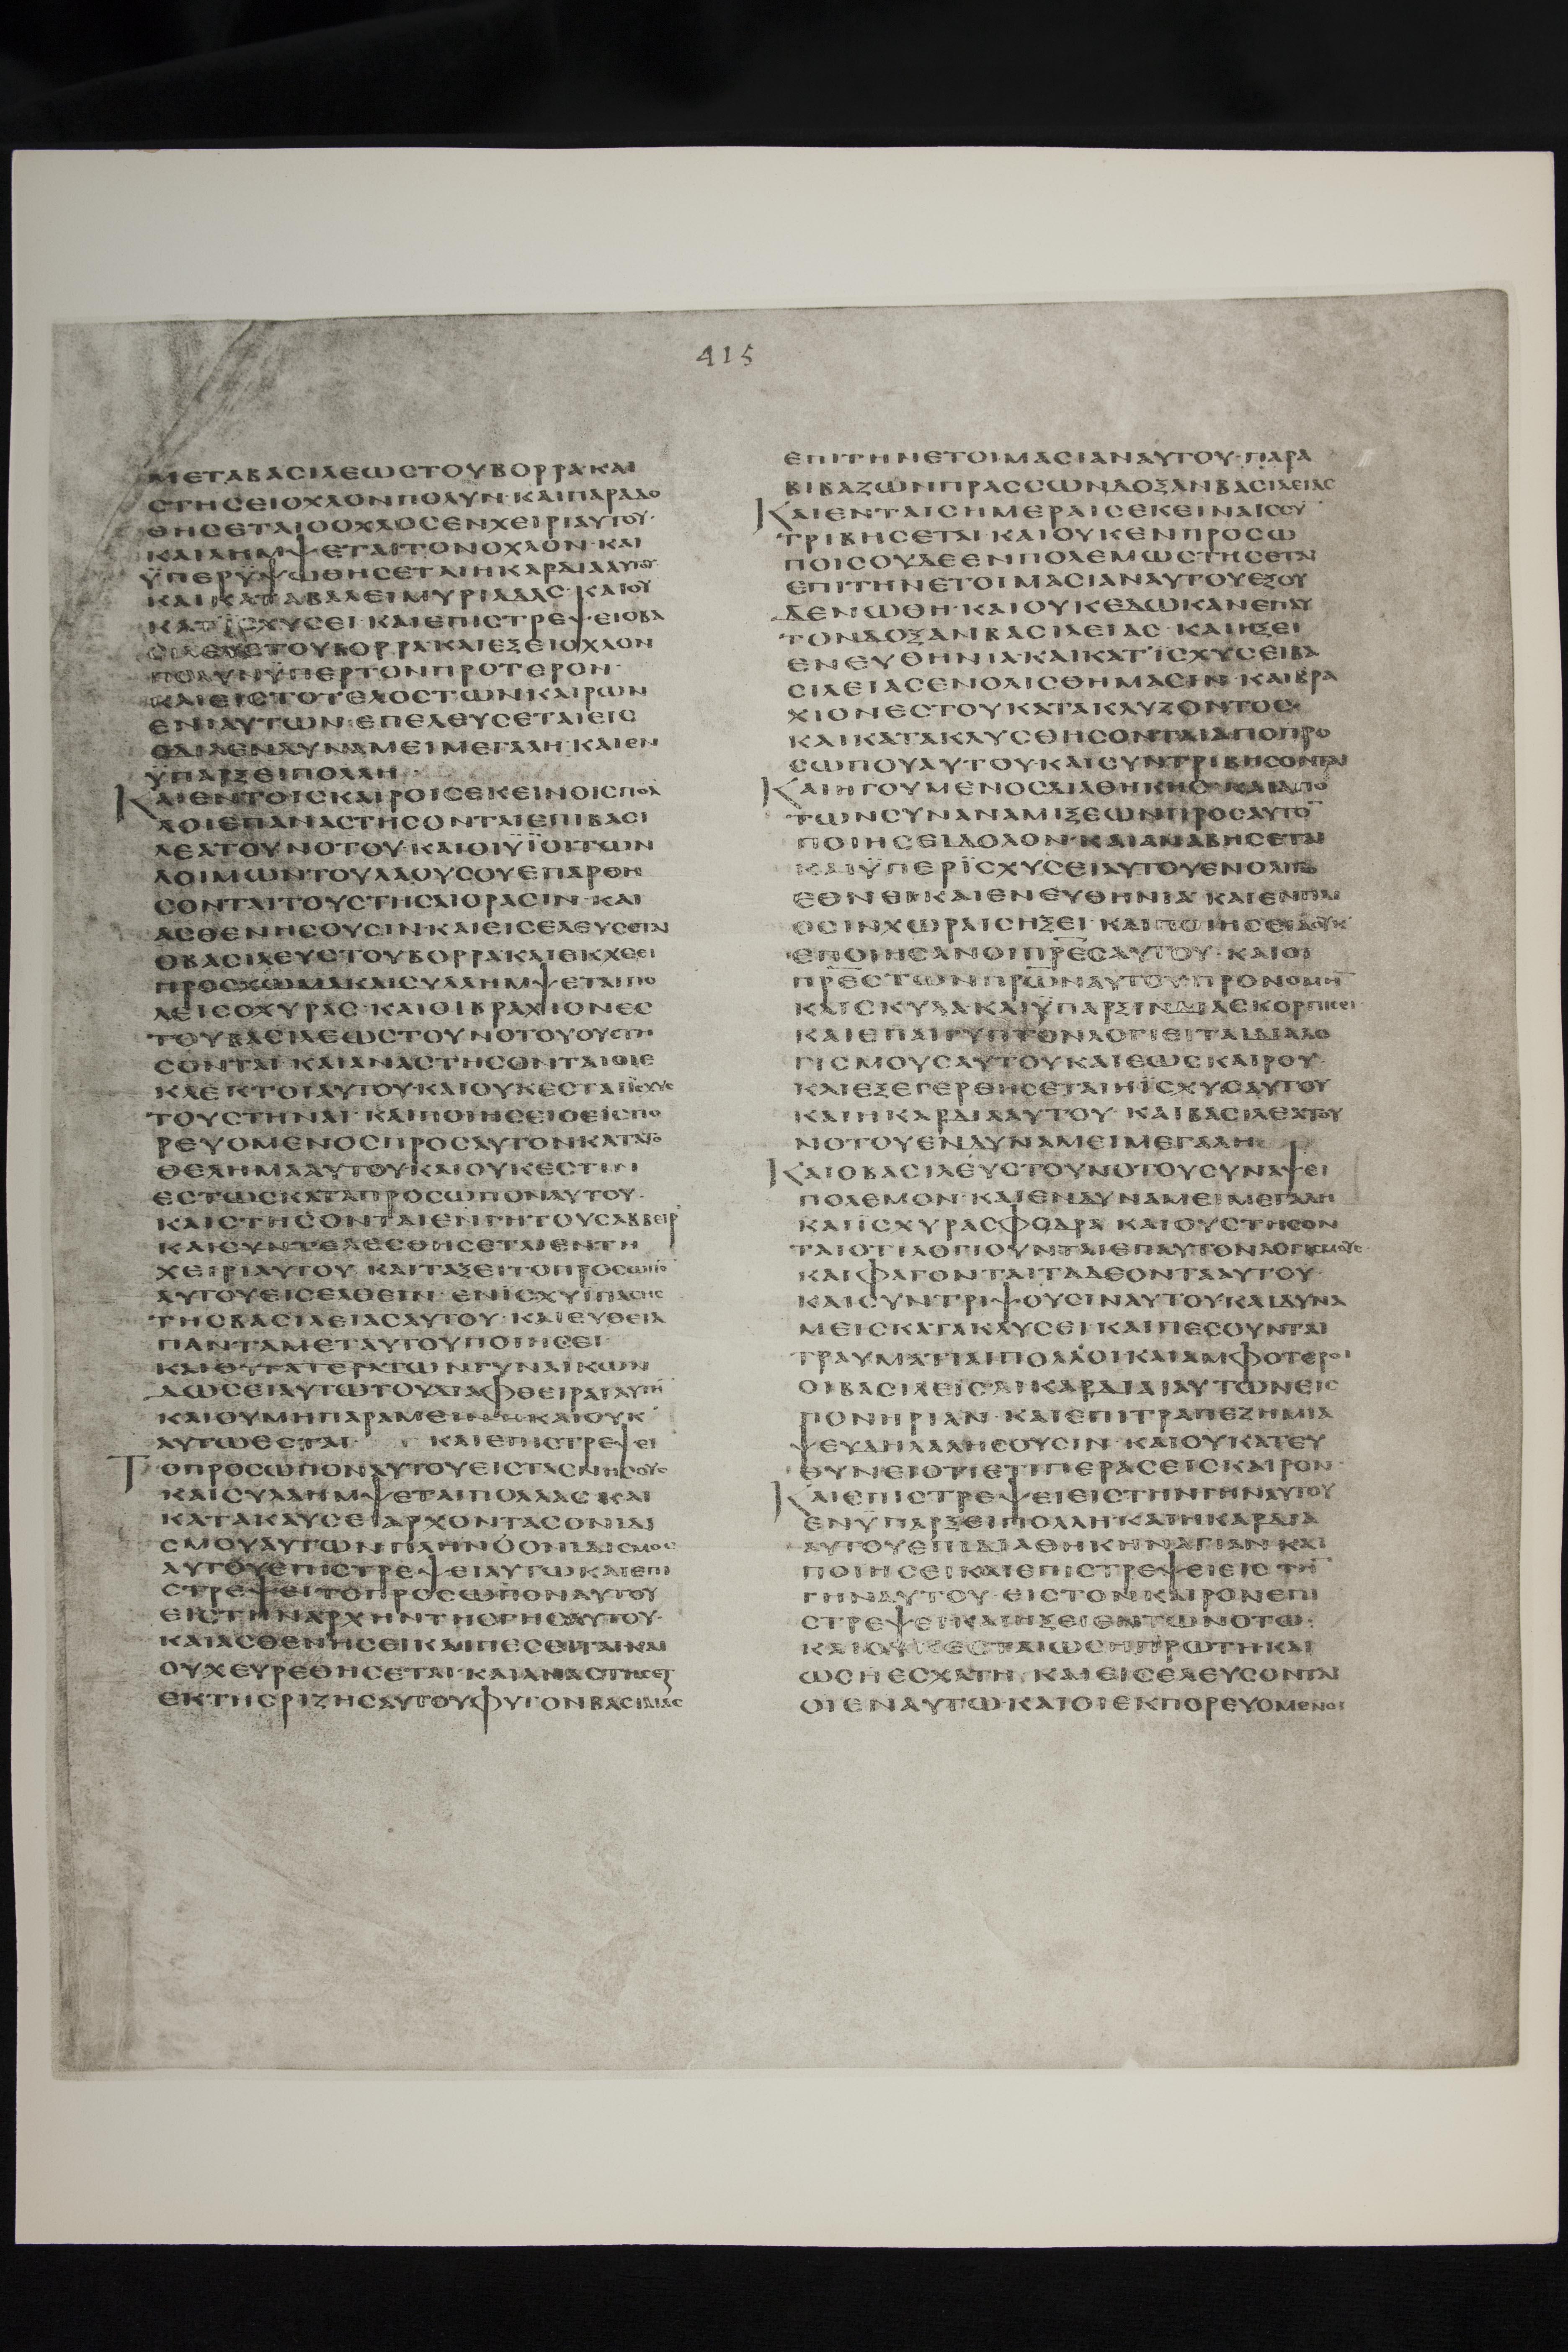 415
ΜΕΤΑΒΑCΙΛΕΩCΤΟΥΒΟΡΡΑ·ΚΑΙ
CΤΗCΕΙΟΧΛΟΝΠΟΛΥΝ·ΚΑΙΠΑΡΑΔΟ
ΘΗCΕΤΑΙΟΟΧΛΟCΕΝΧΕΙΡΙΑΥΤΟΥ·
ΚΑΙΛΗΜΨΕΤΑΙΤΟΝΟΧΛΟΝ·ΚΑΙ
ΫΠΕΡΫΨΩΘΗCΕΤΑΙΗΚΑΡΔΙΑΑΥΤΟΥ·
ΚΑΙΚΑΤΑΒΑΛΕΙΜΥΡΙΑΔΑC·ΚΑΙΟΥ
ΚΑΤΪCΧΥCΕΙ·ΚΑΙΕΠΙCΤΡΕΨΕΙΟΒΑ
CΙΛΕΥCΤΟΥΒΟΡΡΑΚΑΙΕΞΕΙΟΧΛΟΝ
ΠΟΛΥΝΫΠΕΡΤΟΝΠΡΟΤΕΡΟΝ·
ΚΑΙΕΙCΤΟΤΕΛΟCΤΩΝΚΑΙΡΩΝ
ΕΝΙΑΥΤΩΝ·ΕΠΕΛΕΥCΕΤΑΙΕΙC
ΟΔΙΑΕΝΔΥΝΑΜΕΙΜΕΓΑΛΗ·ΚΑΙΕΝ
ΫΠΑΡΞΕΙΠΟΛΛΗ·
ΚΑΙΕΝΤΟΙCΚΑΙΡΟΙCΕΚΕΙΝΟΙCΠΟΛ
ΛΟΙΕΠΑΝΑCΤΗCΟΝΤΑΙΕΠΙΒΑCΙ
ΛΕΑΤΟΥΝΟΤΟΥ·ΚΑΙΟΙΫΪΟΙΤΩΝ
ΛΟΙΜΩΝΤΟΥΛΑΟΥCΟΥΕΠΑΡΘΗ
CΟΝΤΑΙΤΟΥCΤΗCΑΙΟΡΑCΙΝ·ΚΑΙ
ΑCΘΕΝΗCΟΥCΙΝ·ΚΑΙΕΙCΕΛΕΥCΕΤΑΙ
ΟΒΑCΙΛΕΥCΤΟΥΒΟΡΡΑΚΑΙΕΚΧΕΕΙ
ΠΡΟCΧΩΜΑΚΑΙCΥΛΛΗΜΨΕΤΑΙΠΟ
ΛΕΙCΟΧΥΡΑC·ΚΑΙΟΙΒΡΑΧΙΟΝΕC
ΤΟΥΒΑCΙΛΕΩCΤΟΥΝΟΤΟΥΟΥCΤΗ
CΟΝΤΑΙ·ΚΑΙΑΝΑCΤΗCΟΝΤΑΙΟΙΕ
ΚΛΕΚΤΟΙΑΥΤΟΥ·ΚΑΙΟΥΚΕCΤΑΙΪCΧΥC
ΤΟΥCΤΗΝΑΙ·ΚΑΙΠΟΙΗCΕΙΟΕΙCΠΟ
ΡΕΥΟΜΕΝΟCΠΡΟCΑΥΤΟΝΚΑΤΑΤΟ
ΘΕΛΗΜΑΑΥΤΟΥ·ΚΑΙΟΥΚΕCΤΙΝ
ΕCΤΩCΚΑΤΑΠΡΟCΩΠΟΝΑΥΤΟΥ·
ΚΑΙCΤΗCΟΝΤΑΙΕΝΓΗΤΟΥCΑΒΒΕΙΡ
ΚΑΙCΥΝΤΕΛΕCΘΗCΕΤΑΙΕΝΤΗ
ΧΕΙΡΙΑΥΤΟΥ·ΚΑΙΤΑΞΕΙΤΟΠΡΟCΩΠΟ
ΑΥΤΟΥΕΙCΕΛΘΕΙΝ·ΕΝΪCΧΥΪΠΑCΗC
ΤΗCΒΑCΙΛΕΙΑCΑΥΤΟΥ·ΚΑΙΕΥΘΕΙΑ
ΠΑΝΤΑΜΕΤΑΥΤΟΥΠΟΙΗCΕΙ·
ΚΑΙΘΥΓΑΤΕΡΑΤΩΝΓΥΝΑΙΚΩΝ
ΔΩCΕΙΑΥΤΩΤΟΥΔΙΑΦΘΕΙΡΑΙΑΥΤΗ
ΚΑΙΟΥΜΗΠΑΡΑΜΕΙΝΗΚΑΙΟΥΚ
ΑΥΤΩΕCΤΑΙ· ΚΑΙΕΠΙCΤΡΕΨΕΙ
ΤΟΠΡΟCΩΠΟΝΑΥΤΟΥΕΙCΤΑCΝΗCΟΥC
ΚΑΙCΥΛΛΗΜΨΕΤΑΙΠΟΛΛΑC·ΚΑΙ
ΚΑΤΑΚΑΥCΕΙΑΡΧΟΝΤΑCΟΝΙΔΙ
CΜΟΥΑΥΤΩΝΠΛΗΝΟΟΝΙΔΙCΜΟC
ΑΥΤΟΥΕΠΙCΤΡΕΨΕΙΑΥΤΩΚΑΙΕΠΙ
CΤΡΕΨΕΙΤΟΠΡΟCΩΠΟΝΑΥΤΟΥ
ΕΙCΤΗΝΑΡΧΗΝΤΗCΓΗCΑΥΤΟΥ·
ΚΑΙΑCΘΕΝΗCΕΙΚΑΙΠΕCΕΙΤΑΙΚΑΙ
ΟΥΧΕΥΡΕΘΗCΕΤΑΙ·ΚΑΙΑΝΑCΤΗCΕΤ
ΕΚΤΗCΡΙΖΗCΑΥΤΟΥΦΥΤΟΝΒΑCΙΛΙΑC
ΕΠΙΤΗΝΕΤΟΙΜΑCΙΑΝΑΥΤΟΥ·ΠΑΡΑ
ΒΙΒΑΖΩΝΠΡΑCCΩΝΔΟΞΑΝΒΑCΙΛΕΙΑC
ΚΑΙΕΝΤΑΙCΗΜΕΡΑΙCΕΚΕΙΝΑΙCCΥ
ΤΡΙΒΗCΕΤΑΙ·ΚΑΙΟΥΚΕΝΠΡΟCΩ
ΠΟΙCΟΥΔΕΕΝΠΟΛΕΜΩCΤΗCΕΤΑΙ
ΕΠΙΤΗΝΕΤΟΙΜΑCΙΑΝΑΥΤΟΥΕΞΟΥ
ΔΕΝΩΘΗ·ΚΑΙΟΥΚΕΔΩΚΑΝΕΠΑΥ
ΤΟΝΔΟΞΑΝΒΑCΙΛΕΙΑC·ΚΑΙΗΞΕΙ
ΕΝΕΥΘΗΝΙΑ·ΚΑΙΚΑΤΪCΧΥCΕΙΒΑ
CΙΛΕΙΑCΕΝΟΛΙCΘΗΜΑCΙΝ·ΚΑΙΒΡΑ
ΧΙΟΝΕCΤΟΥΚΑΤΑΚΛΥΖΟΝΤΟC·
ΚΑΙΚΑΤΑΚΛΥCΘΗCΟΝΤΑΙΑΠΟΠΡΟ
CΩΠΟΥΑΥΤΟΥΚΑΙCΥΝΤΡΙΒΗCΟΝΤΑΙ
ΚΑΙΗΓΟΥΜΕΝΟCΔΙΑΘΗΚΗC·ΚΑΙΑΠΟ
ΤΩΝCΥΝΑΝΑΜΙΞΕΩΝΠΡΟCΑΥΤΟ
ΠΟΙΗCΕΙΔΟΛΟΝ·ΚΑΙΑΝΑΒΗCΕΤΑΙ
ΚΑΙΫΠΕΡΪCΧΥCΕΙΑΥΤΟΥΕΝΟΛΙΓΩ
ΕΘΝΕΙ·ΚΑΙΕΝΕΥΘΗΝΙΑ·ΚΑΙΕΝΠΙΑ
ΟCΙΝΧΩΡΑΙCΗΞΕΙ·ΚΑΙΠΟΙΗCΕΙΑΟΥΚ
ΕΠΟΙΗCΑΝΟΙΠΡΕCΑΥΤΟΥ·ΚΑΙΟΙ
ΠΡΕCΤΩΝΠΡΩΝΑΥΤΟΥ·ΠΡΟΝΟΜΗ
ΚΑΙCΚΥΛΑ·ΚΑΙΫΠΑΡΞΙΝΔΙΑCΚΟΡΠΙCΕΙ
ΚΑΙΕΠΑΙΓΥΠΤΟΝΛΟΓΙΕΙΤΑΙΔΙΑΛΟ
ΓΙCΜΟΥCΑΥΤΟΥΚΑΙΕΩCΚΑΙΡΟΥ·
ΚΑΙΕΞΕΓΕΡΘΗCΕΤΑΙΗΪCΧΥCΑΥΤΟΥ
ΚΑΙΗΚΑΡΔΙΑΑΥΤΟΥ·ΚΑΙΒΑCΙΛΕΑΤΟΥ
ΝΟΤΟΥΕΝΔΥΝΑΜΕΙΜΕΓΑΛΗ·
ΚΑΙΟΒΑCΙΛΕΥCΤΟΥΝΟΤΟΥCΥΝΑΨΕΙ
ΠΟΛΕΜΟΝ·ΚΑΙΕΝΔΥΝΑΜΕΙΜΕΓΑΛΗ
ΚΑΙΪCΧΥΡΑCΦΟΔΡΑ·ΚΑΙΟΥCΤΗCΟΝ
ΤΑΙΟΤΙΛΟΓΙΟΥΝΤΑΙΕΠΑΥΤΟΝΛΟΓΙCΜΟΥC·
ΚΑΙΦΑΓΟΝΤΑΙΤΑΔΕΟΝΤΑΑΥΤΟΥ·
ΚΑΙCΥΝΤΡΙΨΟΥCΙΝΑΥΤΟΥ·ΚΑΙΔΥΝΑ
ΜΕΙCΚΑΤΑΚΑΥCΕΙ·ΚΑΙΠΕCΟΥΝΤΑΙ
ΤΡΑΥΜΑΤΙΑΙΠΟΛΛΟΙΚΑΙΑΜΦΟΤΕΡΟΙ
ΟΙΒΑCΙΛΕΙCΑΙΚΑΡΔΙΑΙΑΥΤΩΝΕΙC
ΠΟΝΗΡΙΑΝ·ΚΑΙΕΠΙΤΡΑΠΕΖΗΜΙΑ
ΨΕΥΔΗΛΑΛΗCΟΥCΙΝ·ΚΑΙΟΥΚΑΤΕΥ
ΘΥΝΕΙΟΤΙΕΤΙΠΕΡΑCΕΙCΚΑΙΡΟΝ·
ΚΑΙΕΠΙCΤΡΕΨΕΙΕΙCΤΗΝΓΗΝΑΥΤΟΥ
ΕΝΫΠΑΡΞΕΙΠΟΛΛΗ·ΚΑΙΗΚΑΡΔΙΑ
ΑΥΤΟΥΕΠΙΔΙΑΘΗΚΗΝΑΓΙΑΝ·ΚΑΙ
ΠΟΙΗCΕΙ·ΚΑΙΕΠΙCΤΡΕΨΕΙΕΙCΤΗ
ΓΗΝΑΥΤΟΥ·ΕΙCΤΟΝΚΑΙΡΟΝΕΠΙ
CΤΡΕΨΕΙ·ΚΑΙΗΞΕΙΕΝΤΩΝΟΤΩ·
ΚΑΙΟΥΚΕCΤΑΙΩCΗΠΡΩΤΗΚΑΙ
ΩCΗΕCΧΑΤΗ·ΚΑΙΕΙCΕΛΕΥCΟΝΤΑΙ
ΟΙΕΝΑΥΤΩ·ΚΑΙΟΙΕΚΠΟΡΕΥΟΜΕΝΟΙ